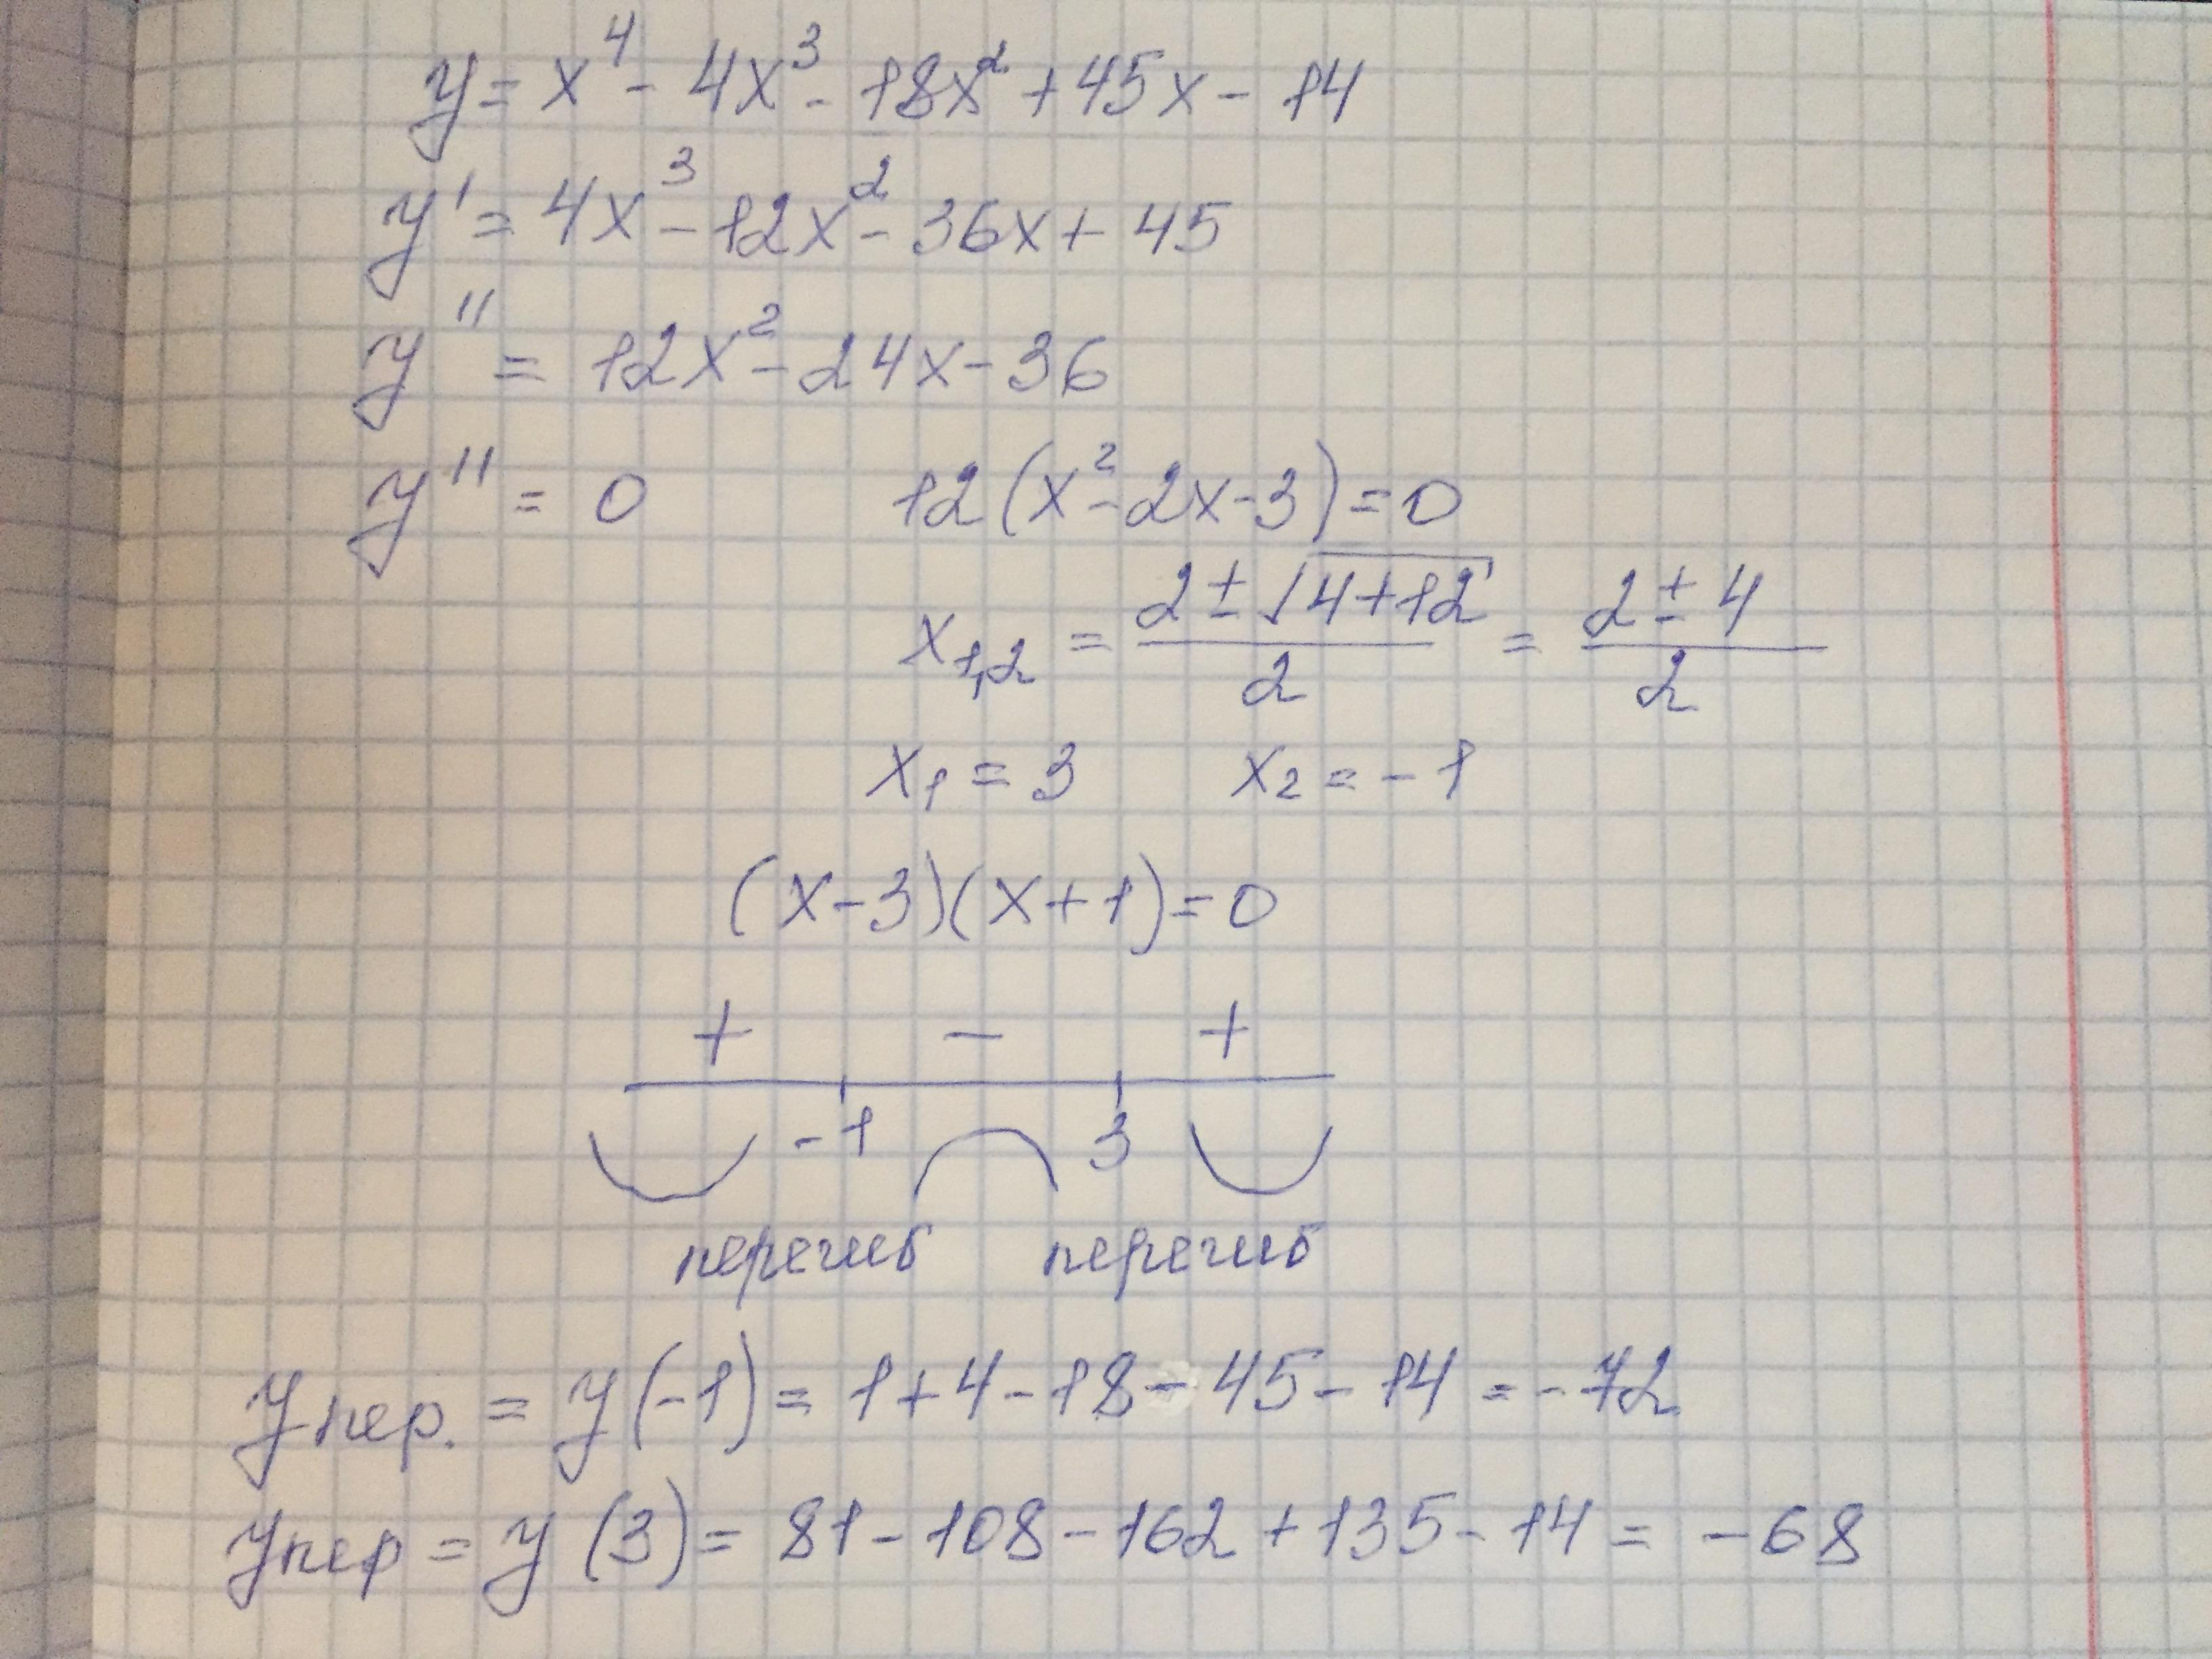 y = x⁴ - 4x³ - 18x² + 45x - 14
y' = 4x³ - 12x² - 36x + 45
y'' = 12x² - 24x - 36
y'' = 0 12(x² - 2x - 3) = 0
x₁,₂ = (2 ± √(4+12))/2 = (2 ± 4)/2
x₁ = 3 x₂ = -1
(x - 3)(x + 1) = 0
+ - +
-1 3
перегиб перегиб
yпер. = y(-1) = 1 + 4 - 18 - 45 - 14 = -72
yпер = y(3) = 81 - 108 - 162 + 135 - 14 = -68